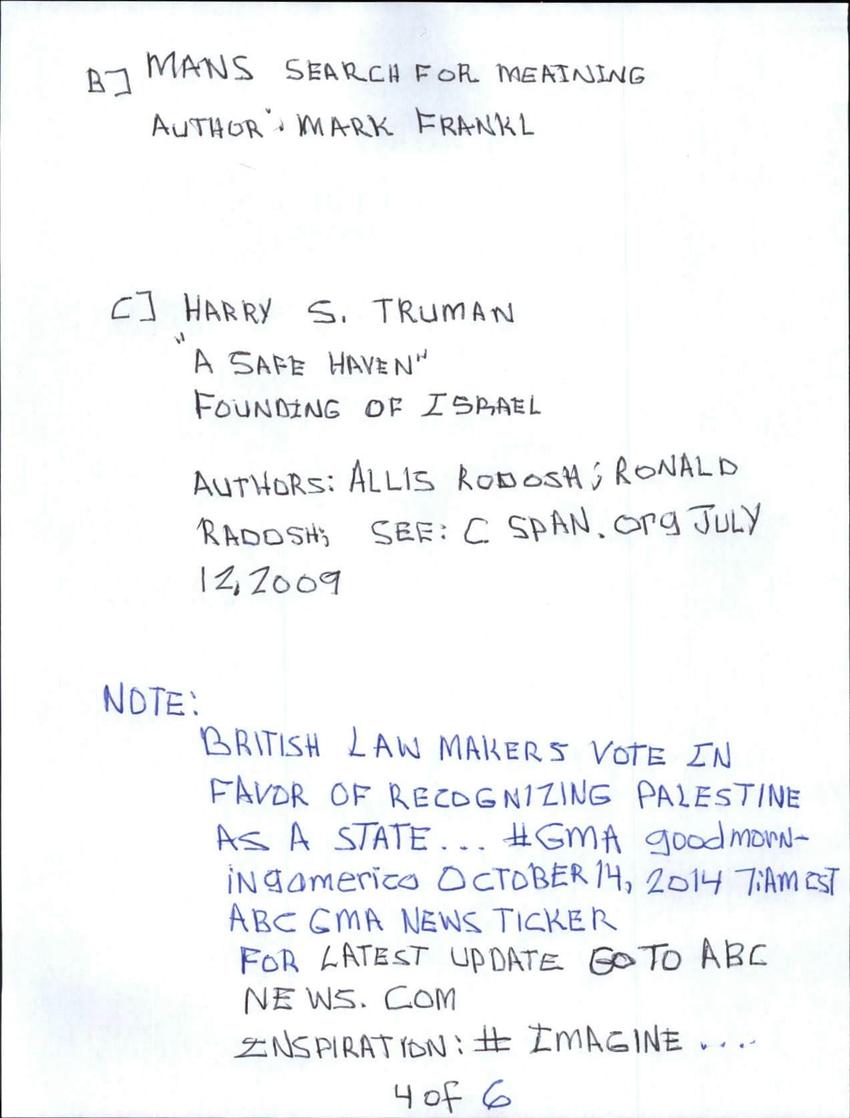 B] MANS SEARCH FOR MEAINING
AUTHOR: MARK FRANKL
C] HARRY S. TRUMAN
"A SAFE HAVEN"
FOUNDING OF ISRAEL
AUTHORS: ALLIS RODOSH; RONALD
RADOSH; SEE: C SPAN.org JULY
12, 2009
NOTE:
BRITISH LAW MAKERS VOTE IN
FAVOR OF RECOGNIZING PALESTINE
AS A STATE... #GMA goodmorn-
ingamerica OCTOBER 14, 2014 7:AM CST
ABC GMA NEWS TICKER
FOR LATEST UPDATE GO TO ABC
NEWS. COM
INSPIRATION: # IMAGINE ....
4 of 6